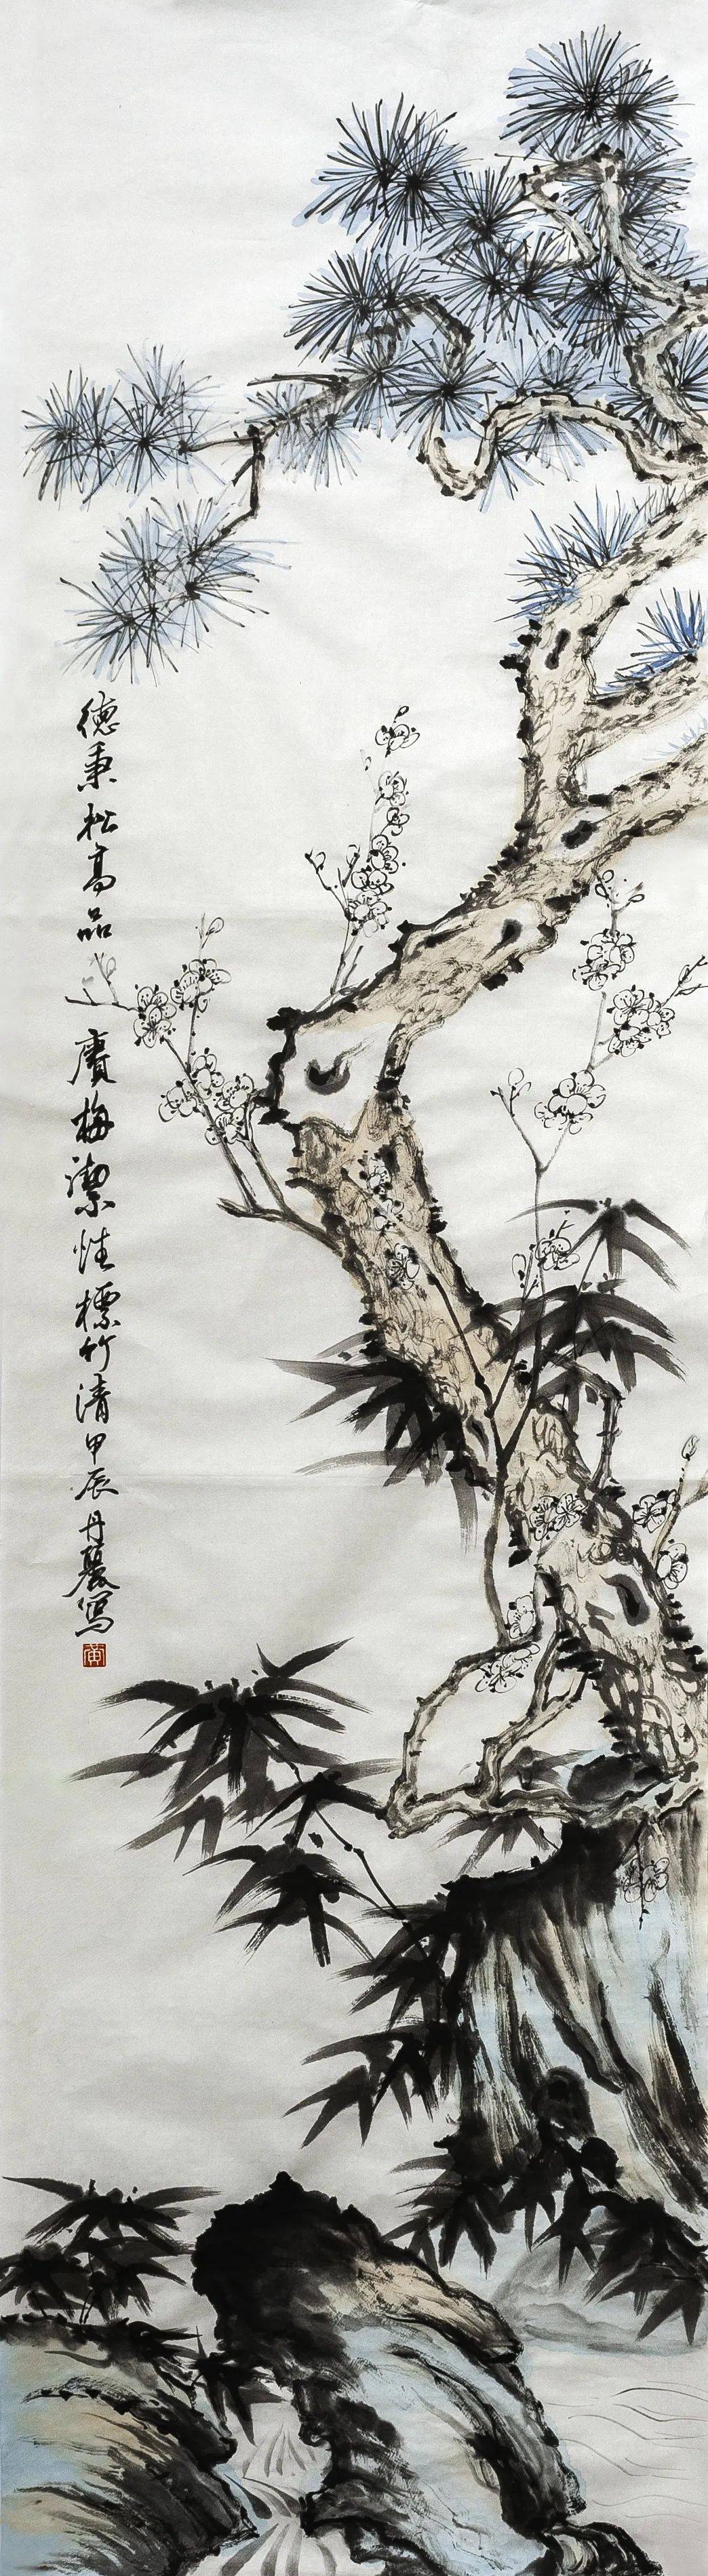 德秉松高品賡梅潔性標竹清甲辰丹麗写
黄